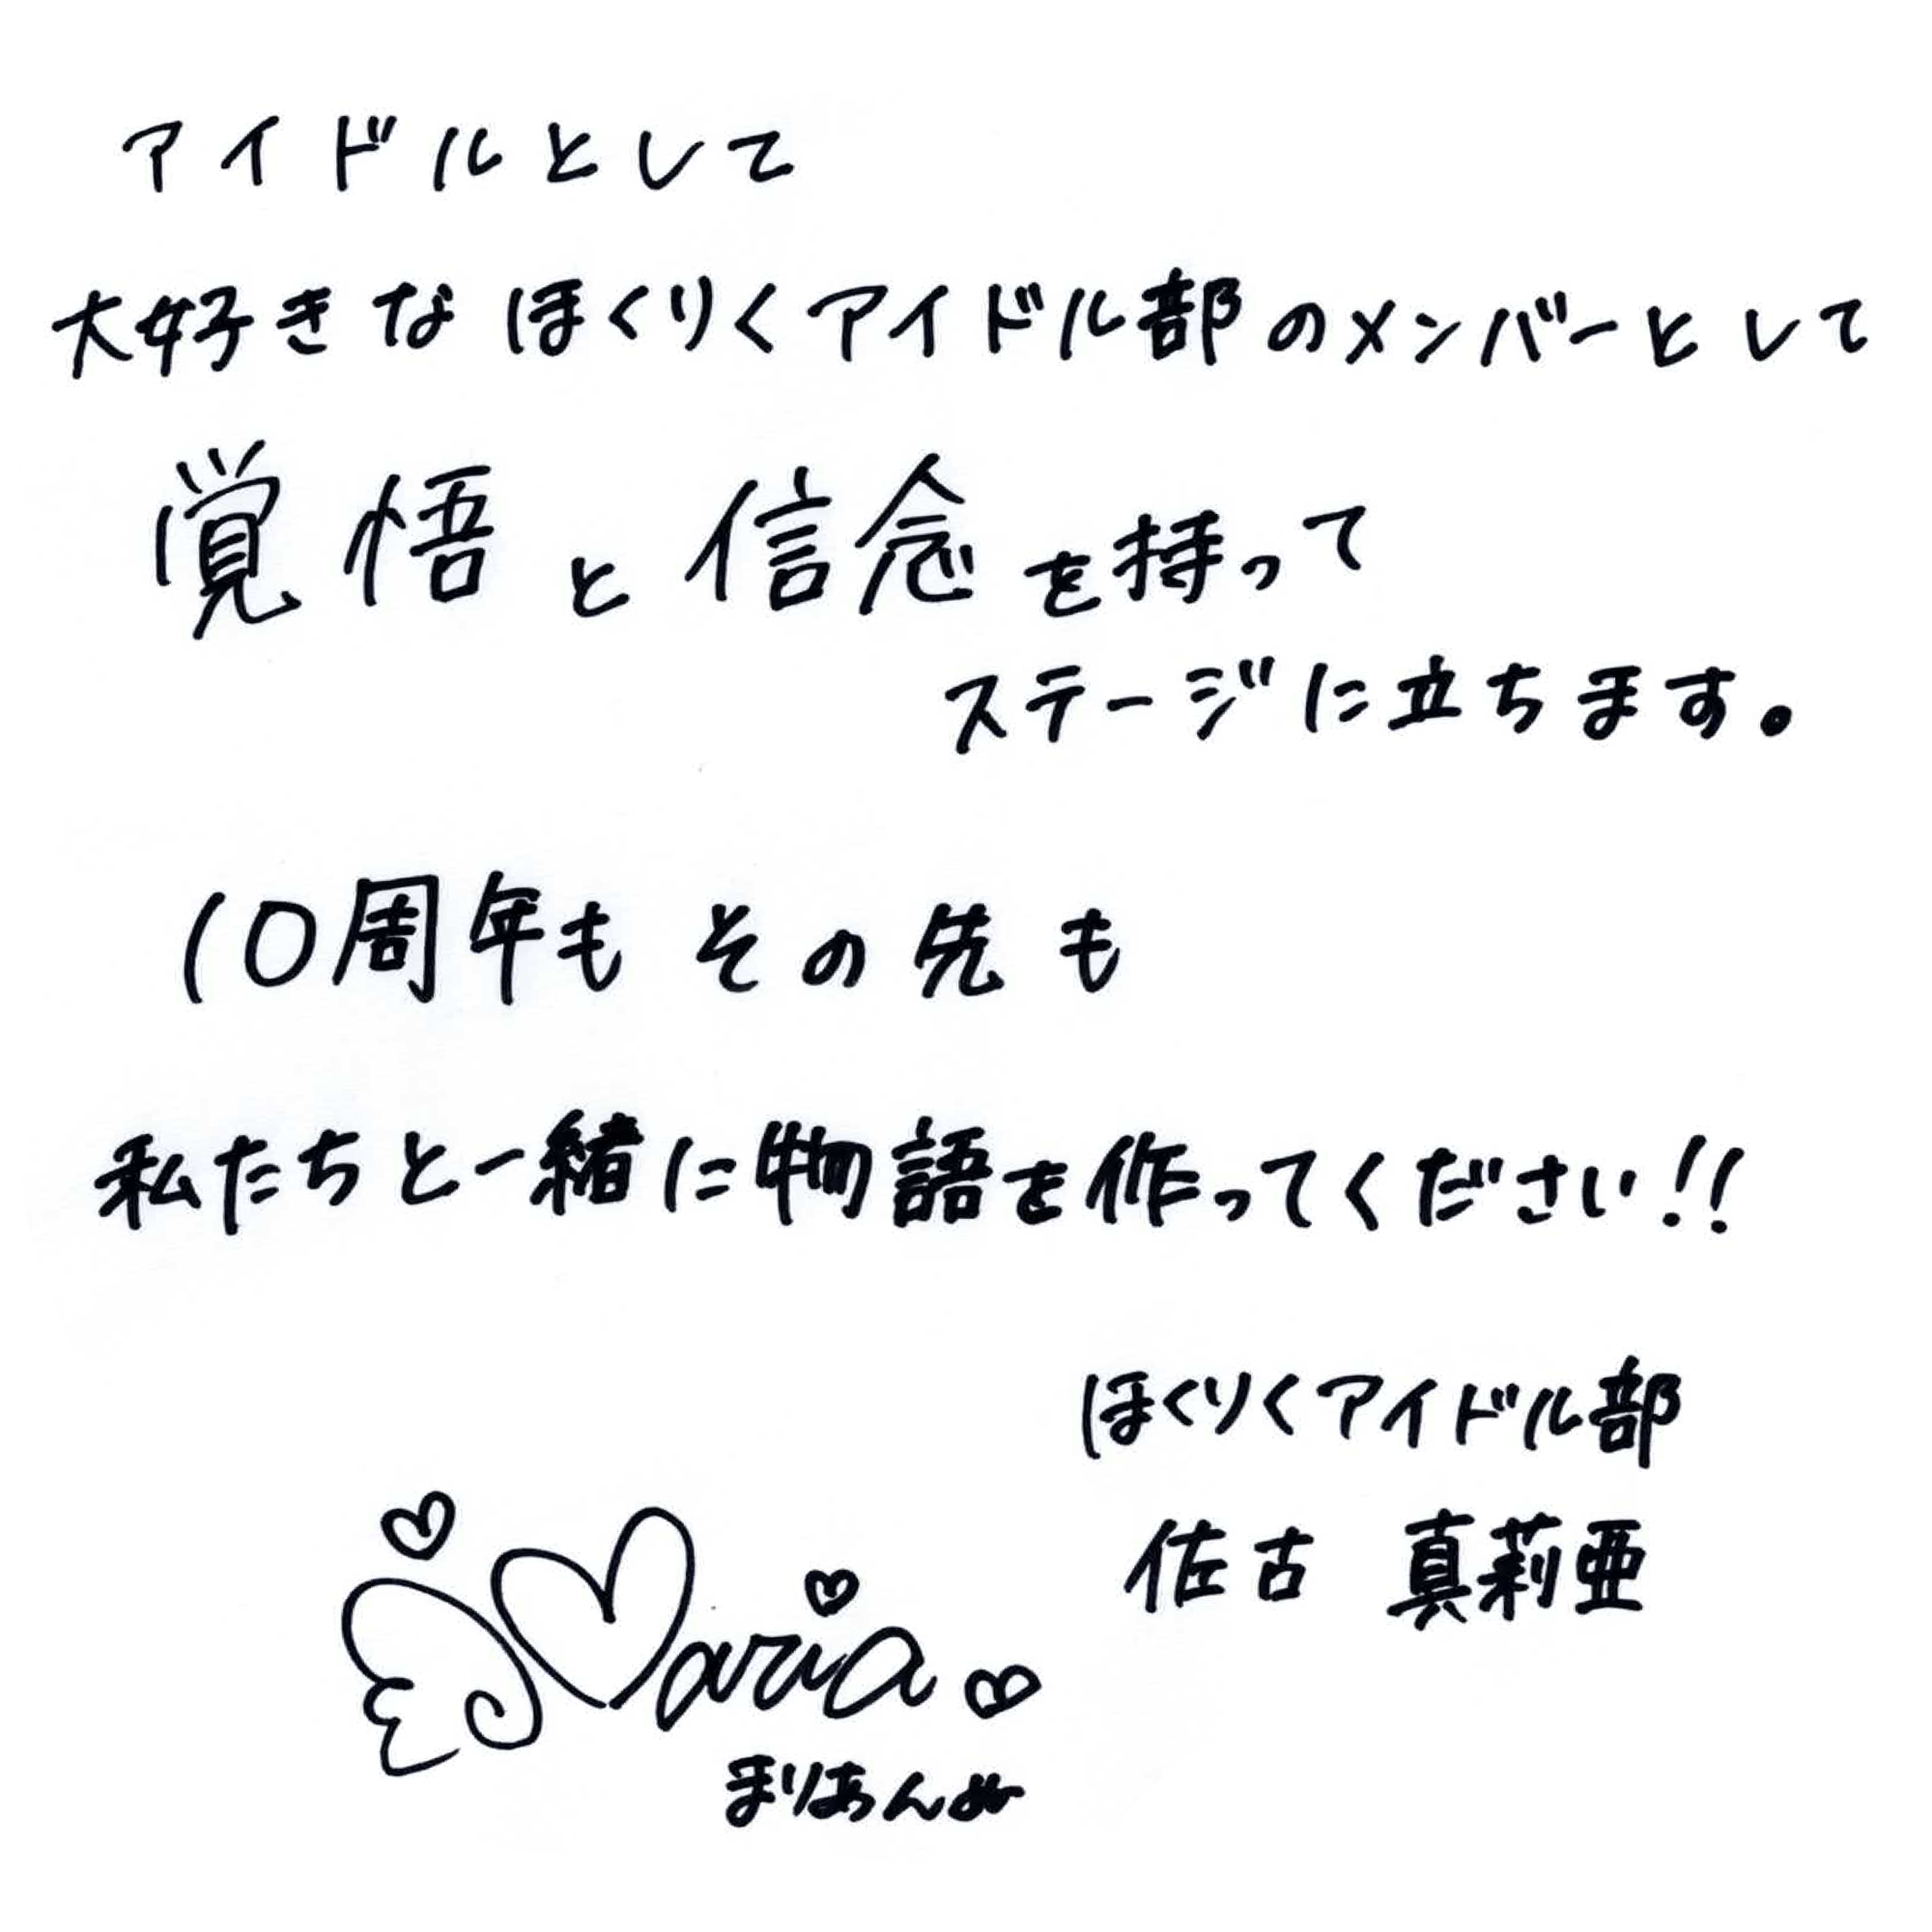 アイドルとして
大好きなほくりくアイドル部のメンバーとして
覚悟と信念を持って
ステージに立ちます。
10周年もその先も
私たちと一緒に物語を作ってください!!
ほくりくアイドル部
佐古 真莉亜
Maria
まりあんぬ